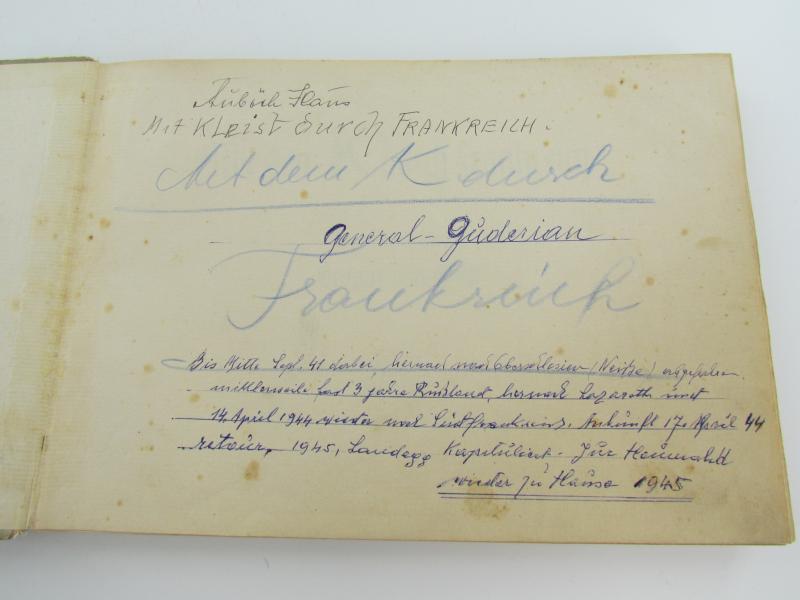 Hans
Mit Kleist durch FRANKREICH.
Mit dem K durch
General - Guderian
Frankreich
Bis Mitte Sept. 41 dabei, hiernach nach Oberschlesien (Neisse) abgefahren
mittlerweile fast 3 jahre Rußland, hernach Lazarett und
14 April 1944 wieder nach Südfrankreich. Ankunft 17. April 44
retour, 1945, Landegg Kapituliert. Zur Heimat
wieder zu Hause 1945